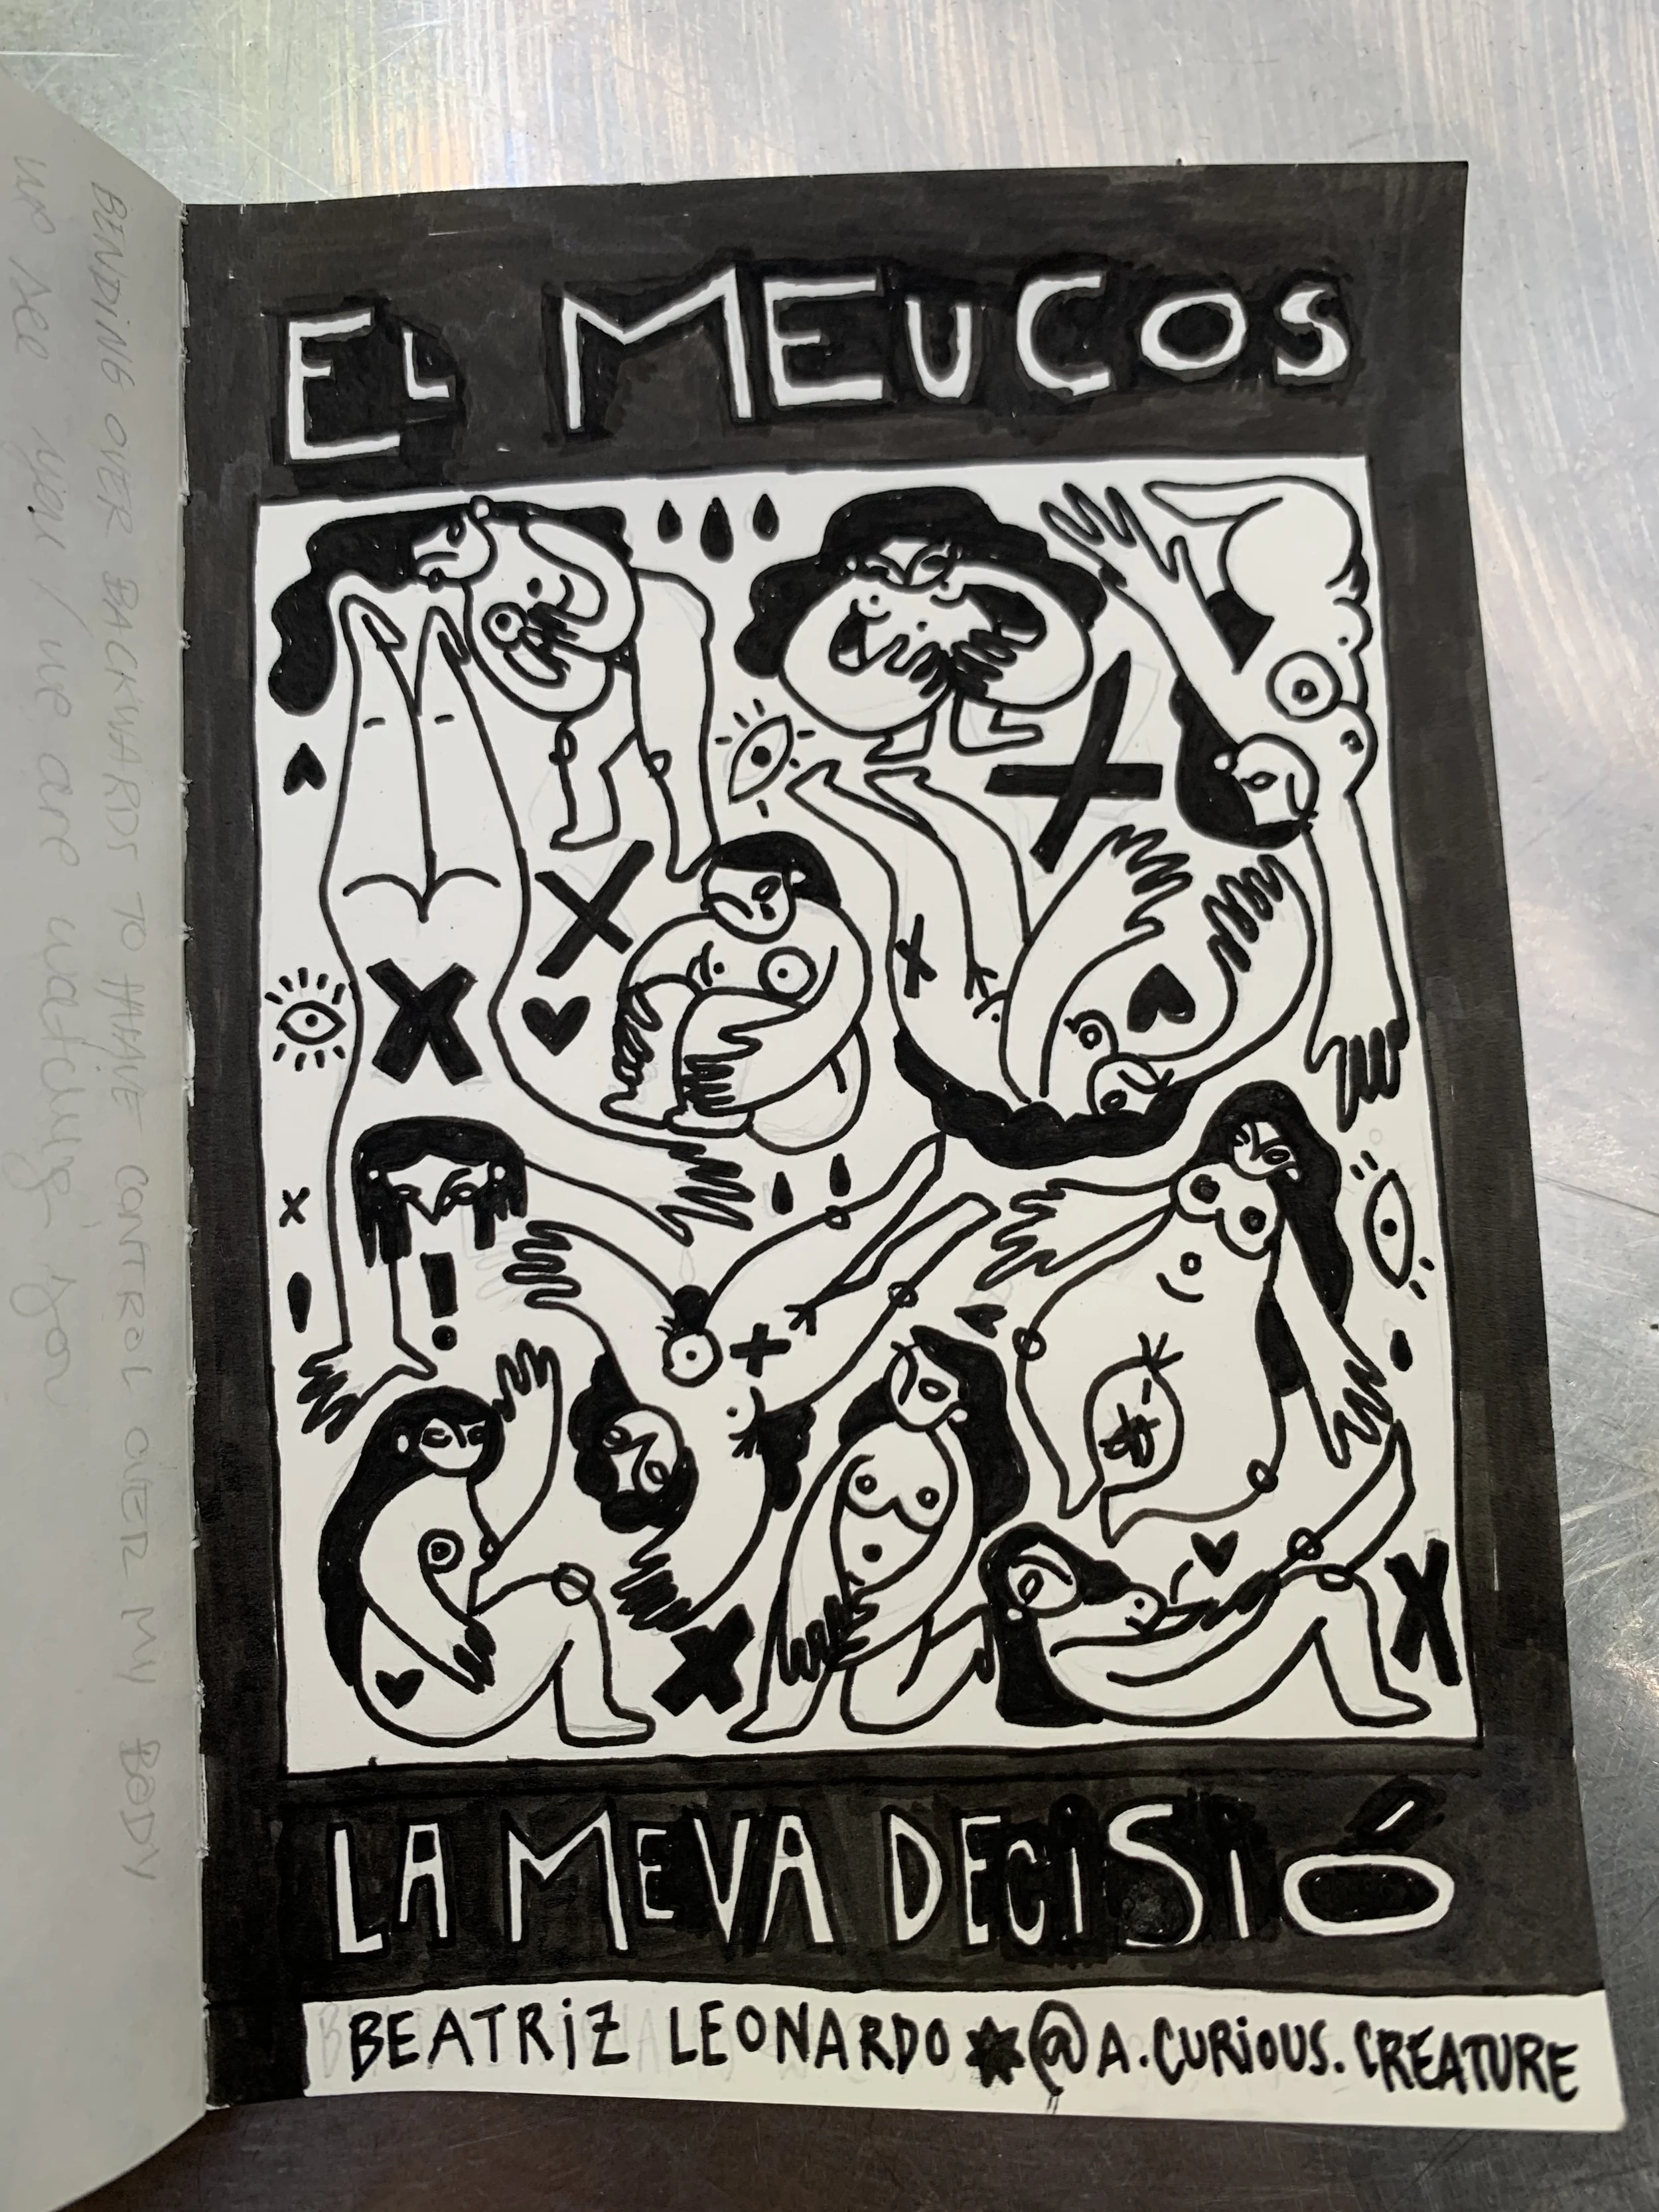 BENDING OVER BACKWARDS TO HAVE CONTROL OVER MY BODY
we see you / we are watching you
EL MEUCOS
LA MEVA DECISIÓ
BEATRIZ LEONARDO @A.CURIOUS.CREATURE